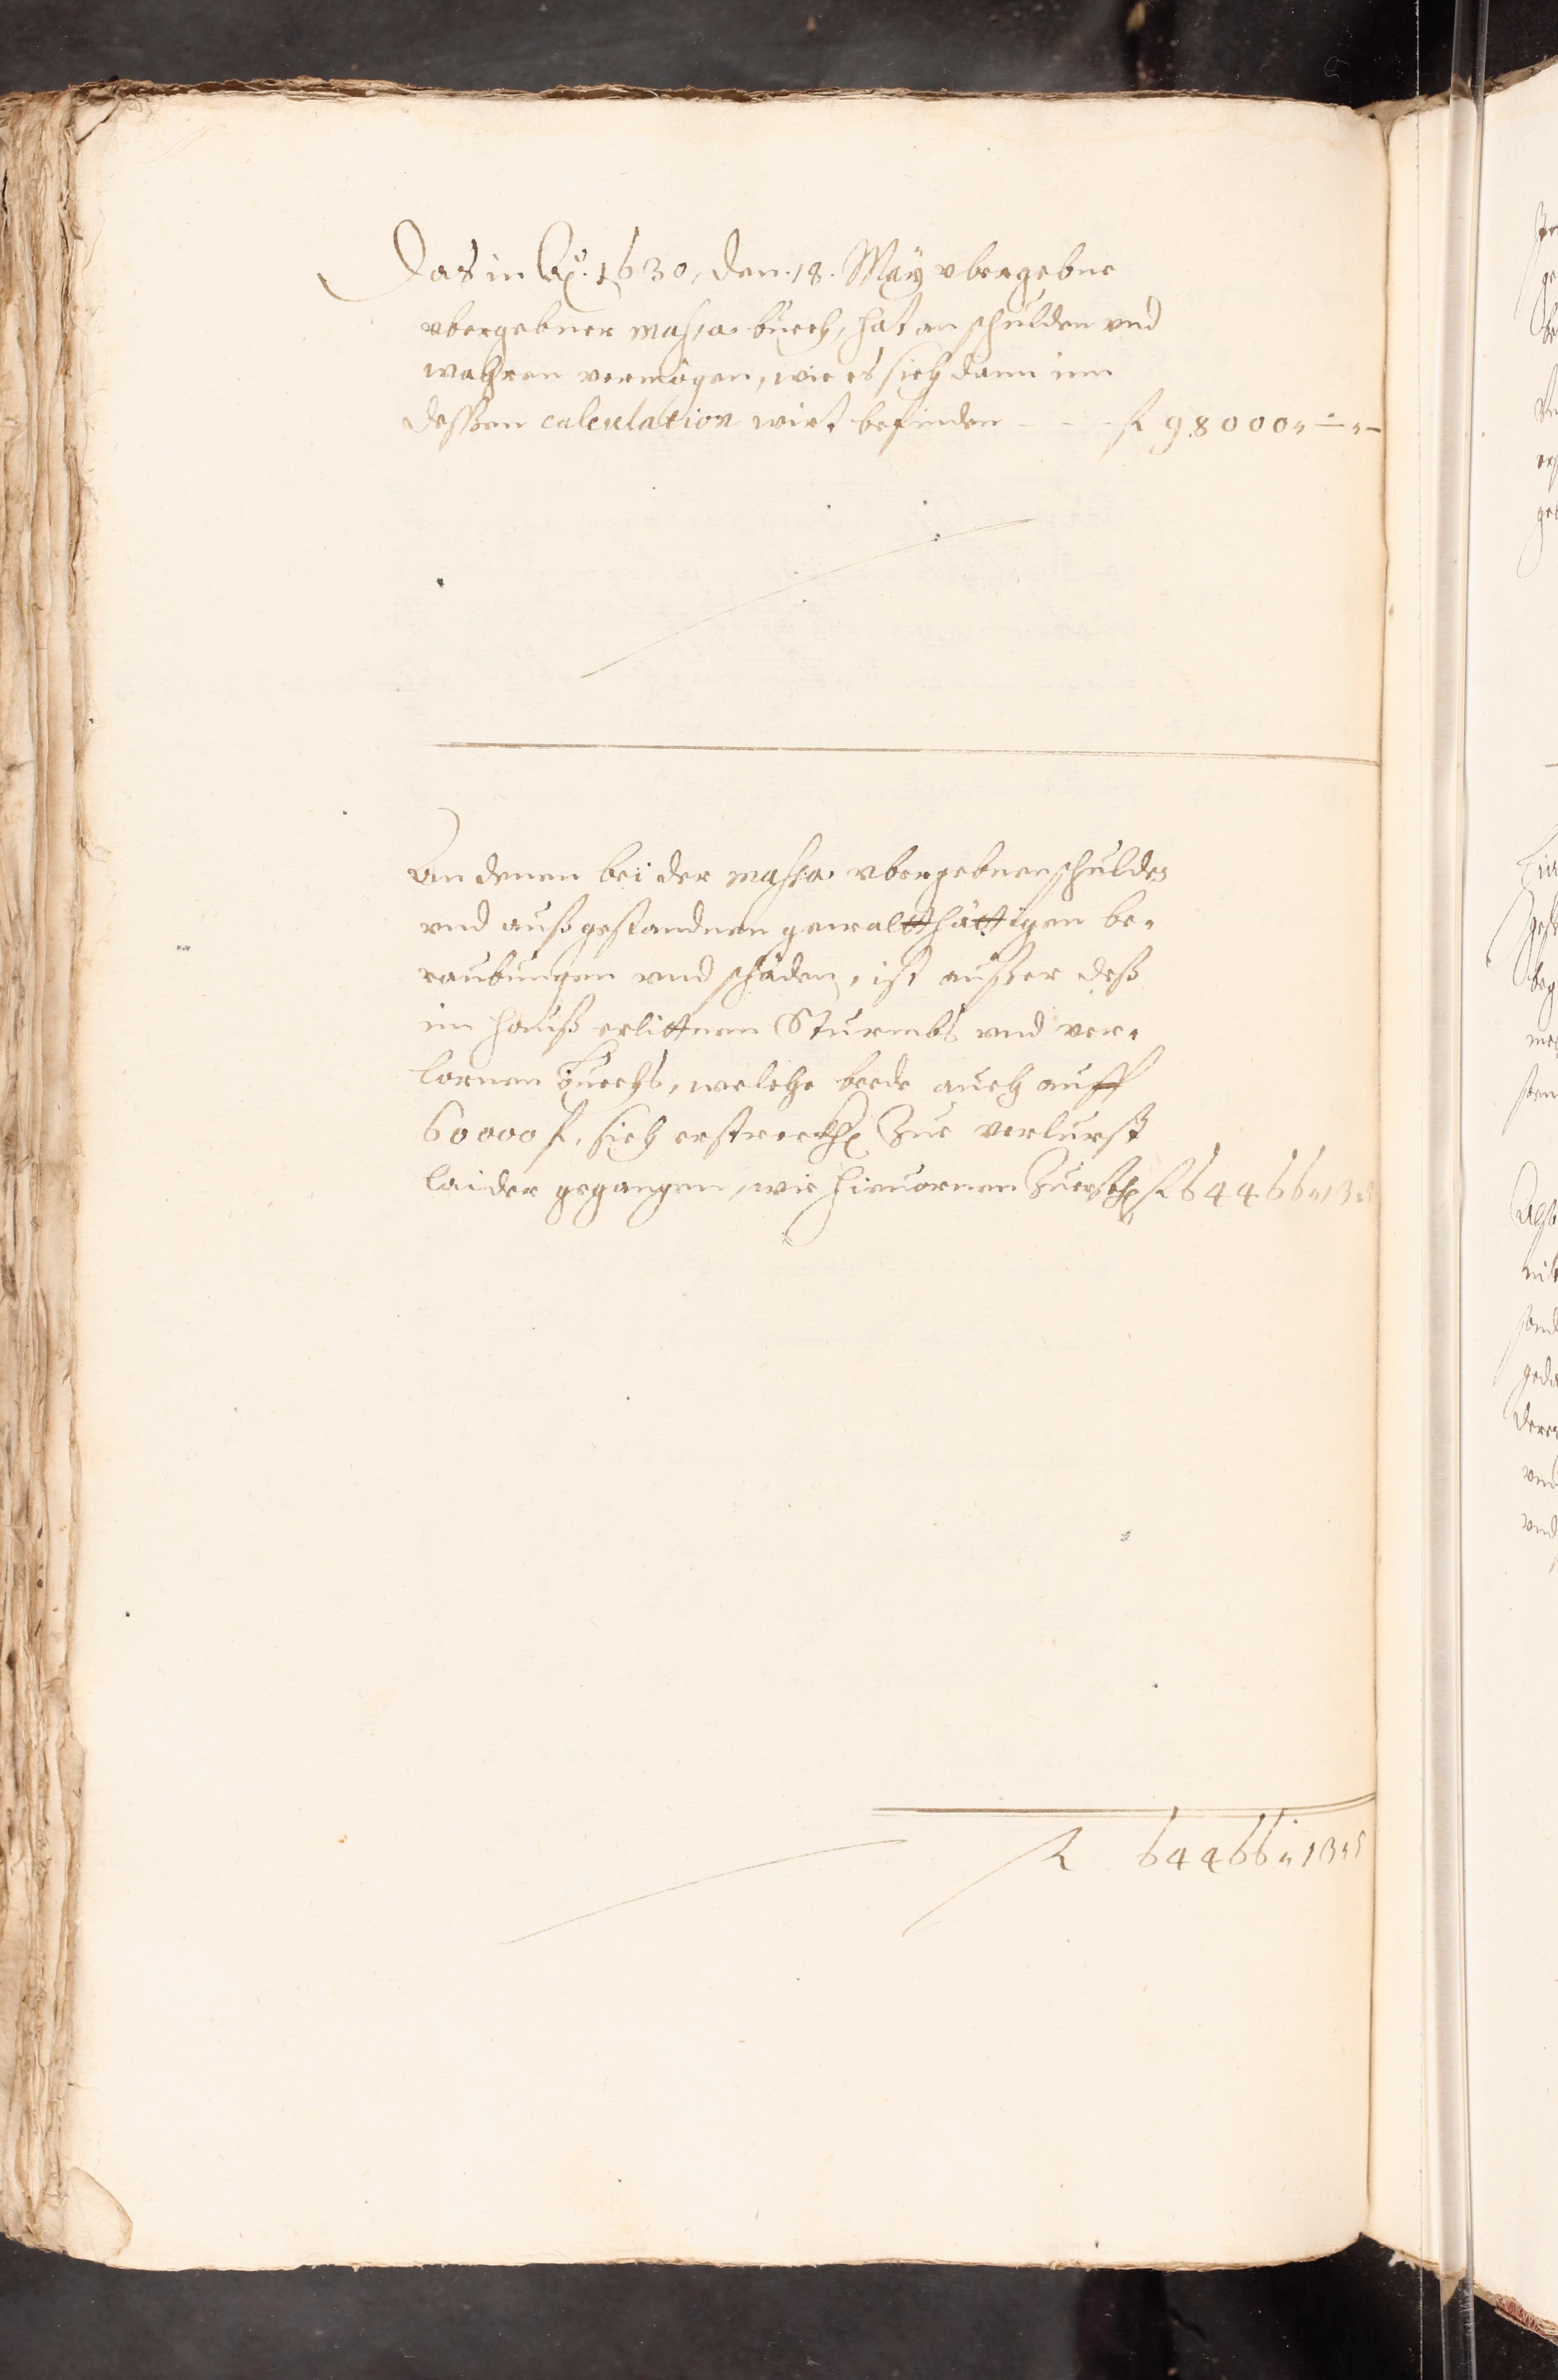 Das in Aō. 1630, den. 18. Maÿ vbergebne
vbergebner massa buech, hat an schulden vnd
wahren vermögen, wie es sich dann inn
dessen calculation wirt befinden - - - fl 98000 „ — „ —
An denen bei der massa vbergebnen schulden
vnd außgestandnen gewaltthättigen be-
raubungen vnd schäden, ist ausser deß
im Hauß erlittnen Sturmbs vnd ver-
lornen buechs, welche beede auch auff
60000 f. sich erstreckh Zue verlurst
laider gegangen, wie hieuornen Zuersech fl 64466 „ 13 „ 5
fl 64466 „ 13 „ 5